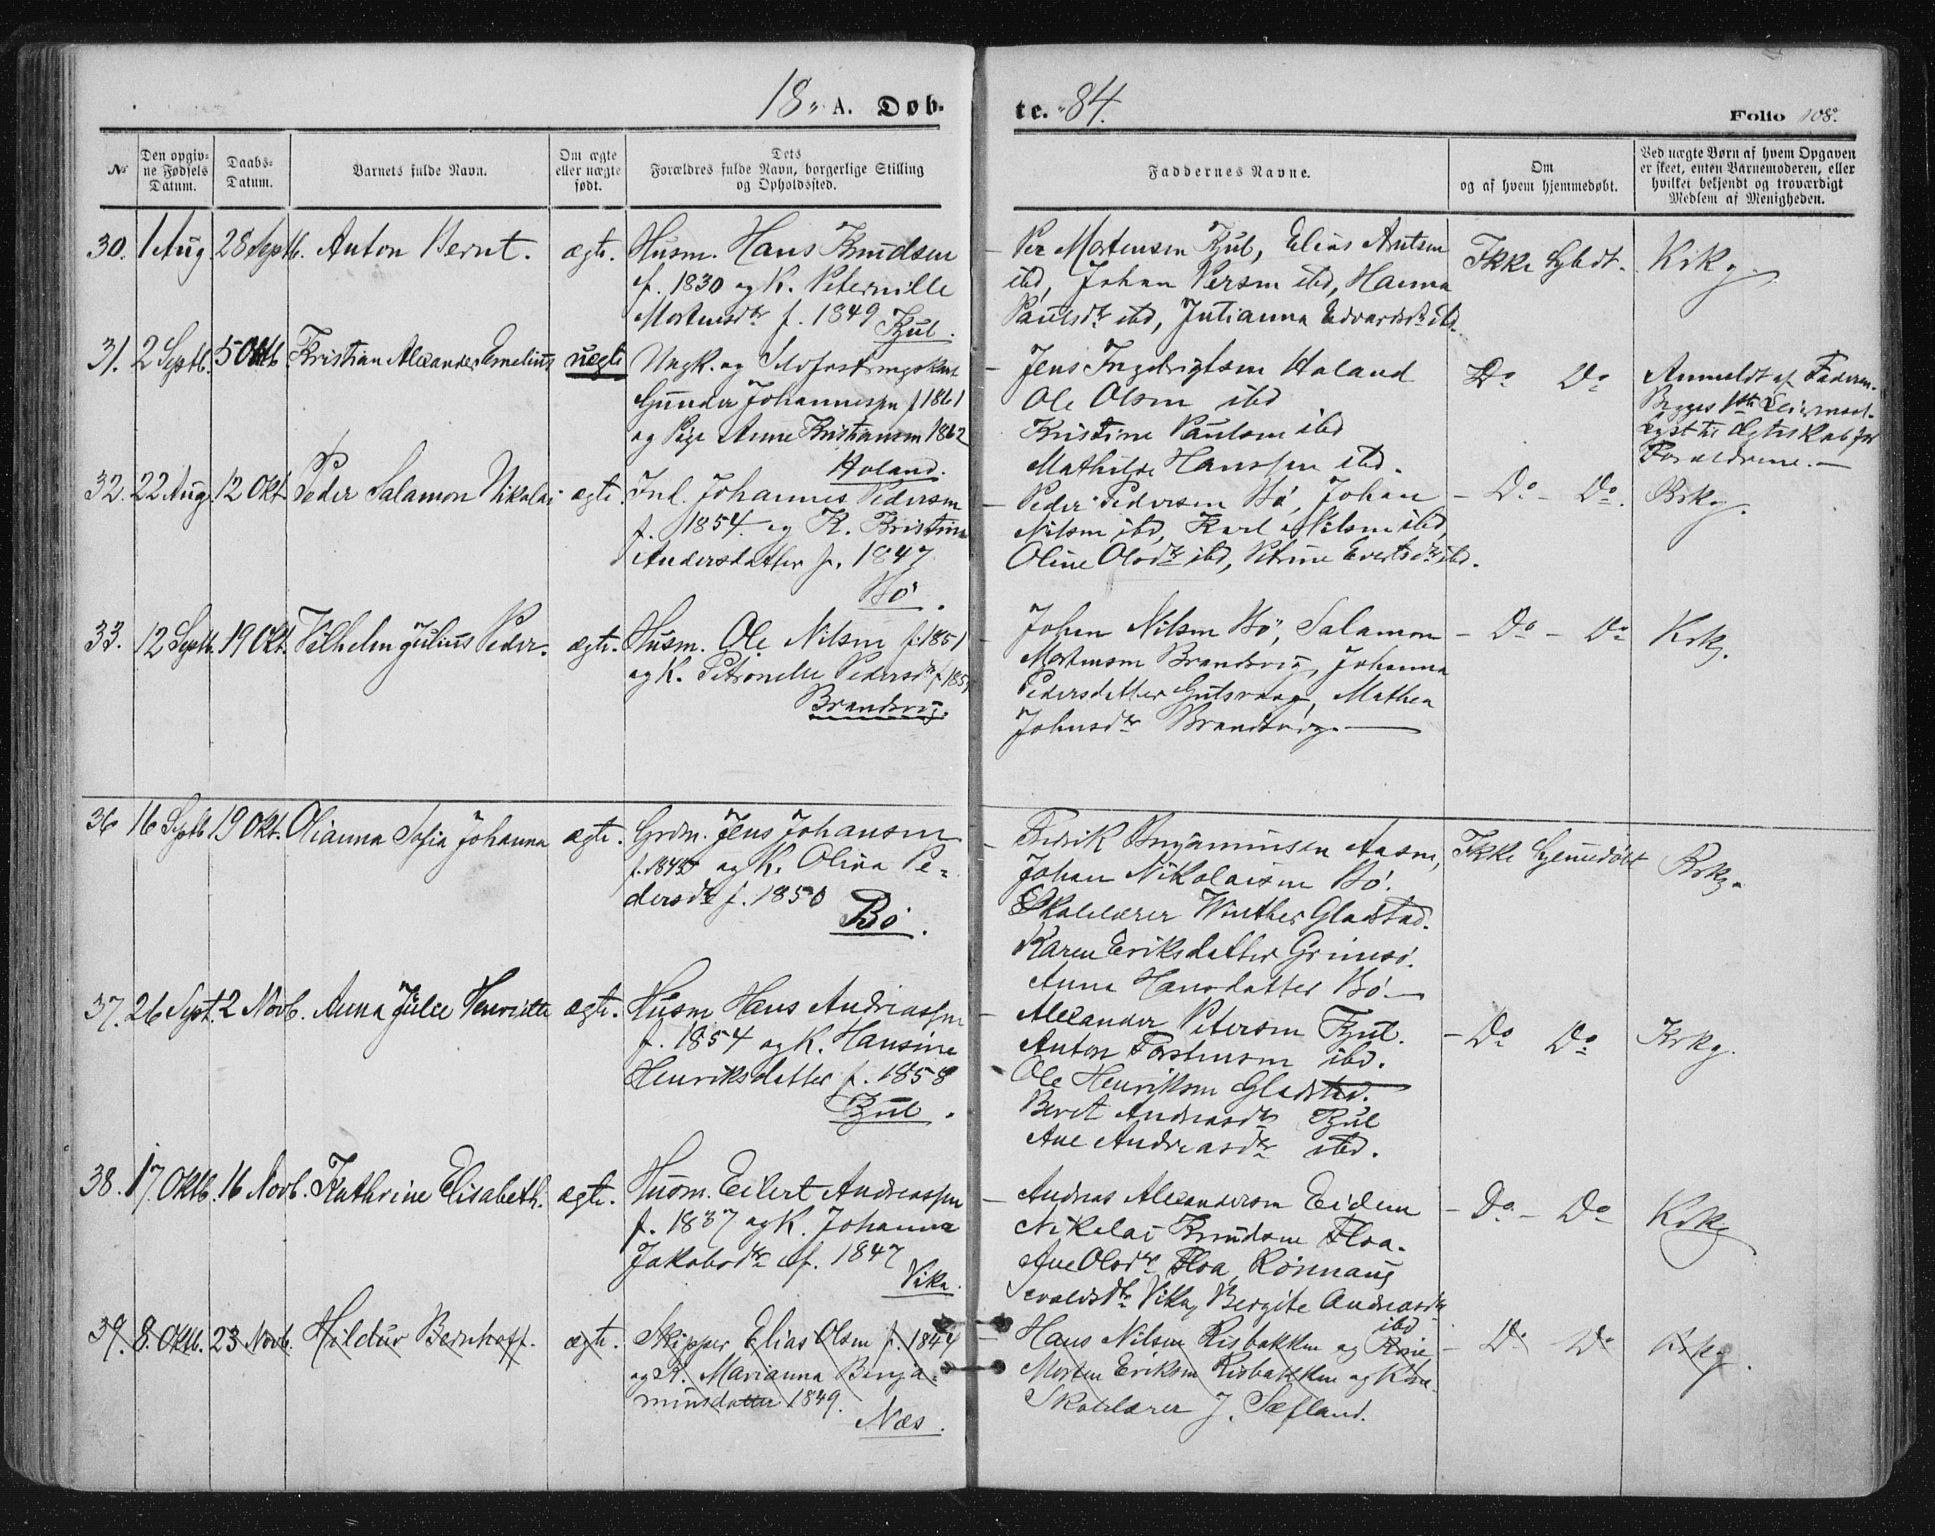 18 A. Døb-
te. 84.
Folio 108.
Nr
Den opgiv-
ne Fødsels
Datum.
Daabs-
Datum.
Barnets fulde Navn.
Om ægte
eller uægte
født.
Dets
Forældres fulde Navn, borgerlige Stilling
og Opholdssted.
Faddernes Navne.
Om
og af hvem hjemmedøbt.
Ved uægte Børn af hvem Opgaven
er skeet, enten Barnemoderen, eller
hvilket bekjendt og troværdigt
Medlem af Menigheden.
30. 1 Aug 28 Septb. Anton Bernt. ægte.
Husm. Hans Knudsen
f. 1830 og K. Peternille
Mortensdtr f. 1849
Kjul.
Per Mortensen Kjul, Elias Antsen
ibd, Johan Persen ibd, Hanna
Paulsdtr ibd, Julianna Edvardsdtr ibd.
Ikke Hjbdt. Krkg.
31. 2 Septb. 5 Oktb Kristian Alexander Emelius uægte
Ungk. og
Gunder Johannessen f 1861
og Pige Anne Kristiansen 1862
Holand.
Jens Ingebrigtsen Holand
Ole Olsen ibd
Kristine Paulsen ibd
Mathilde Hanssen ibd.
Do Do
Anmeldt af Faderen.
Begges 1ste Leiermaal.
Lyst til Ægteskab for
Forældrene.
32. 22 Aug 12 Okt Peder Salamon Nikolai ægte.
Inl. Johannes Pedersen
f. 1854 og K. Kristina
Andersdatter f. 1847
Bø.
Peder Pedersen Bø, Johan
Nilsen ibd, Karl Nilsen ibd,
Oline Olsdtr ibd, Petrine Evertsdtr ibd.
Do Do. Krkg.
33. 12 Septb. 19 Okt. Vilhelm Julius Peder. ægte.
Husm. Ole Nilsen f. 1851
og K. Petronelle Pedersdtr f 185
Brandsvig.
Johan Nilsen Bø, Salamon
Mortensen Brandsvig, Johanna
Pedersdatter Gutsvaag, Mathea
Johnsdtr Brandsvig.
Do Do Krkg.
36 16 Septb 19 Okt. Olianna Sofia Johanna ægte.
Grdm. Jens Johansen
f. 1845 og K. Olina Pe-
dersdtr f. 1850
Bø.
Fredrik Benjaminsen Aasen,
Johan Nikolaisen Bø.
Skolelærer Winther Gladstad.
Karen Eriksdatter Grimsø.
Anna Hansdatter Bø
Ikke Hjemmedøbt Krkg.
37. 26 Sept. 2 Novb. Anna Julie Henriette ægte.
Husm Hans Andreassen
f. 1854 og K. Hansine
Henriksdatter f. 1858
Kjul.
Alexander Petersen Kjul.
Anton Torstensen ibd.
Ole Henriksen Gladstad.
Beret Andreasdtr Kjul
Ane Andreasdtr ibd.
Do Do Krkg.
38. 17 Oktb. 16 Novb. Kathrine Elisabeth. ægte.
Husm. Eilert Andreassen
f. 1837 og K. Johanna
Jakobsdtr f. 1847
Vika.
Andreas Alexandersen Eidem
Nikolai Knudsen Floa.
Ane Olsdtr Floa, Rønnaug
Vika, Bergite Andreasdtr
ibd
Do Do Krkg
39. 8. Oktb. 23 Novb. Hildur Bernhoff. ægte.
Skipper Elias Olsen f. 1844
og K. Marianna Benja-
minsdatter 1849.
Næs.
Hans Nilsen Risbakken og Kone
Morten Eriksen Risbakken og Kone
Skolelærer J. Sæfland.
Do Do Krkg.